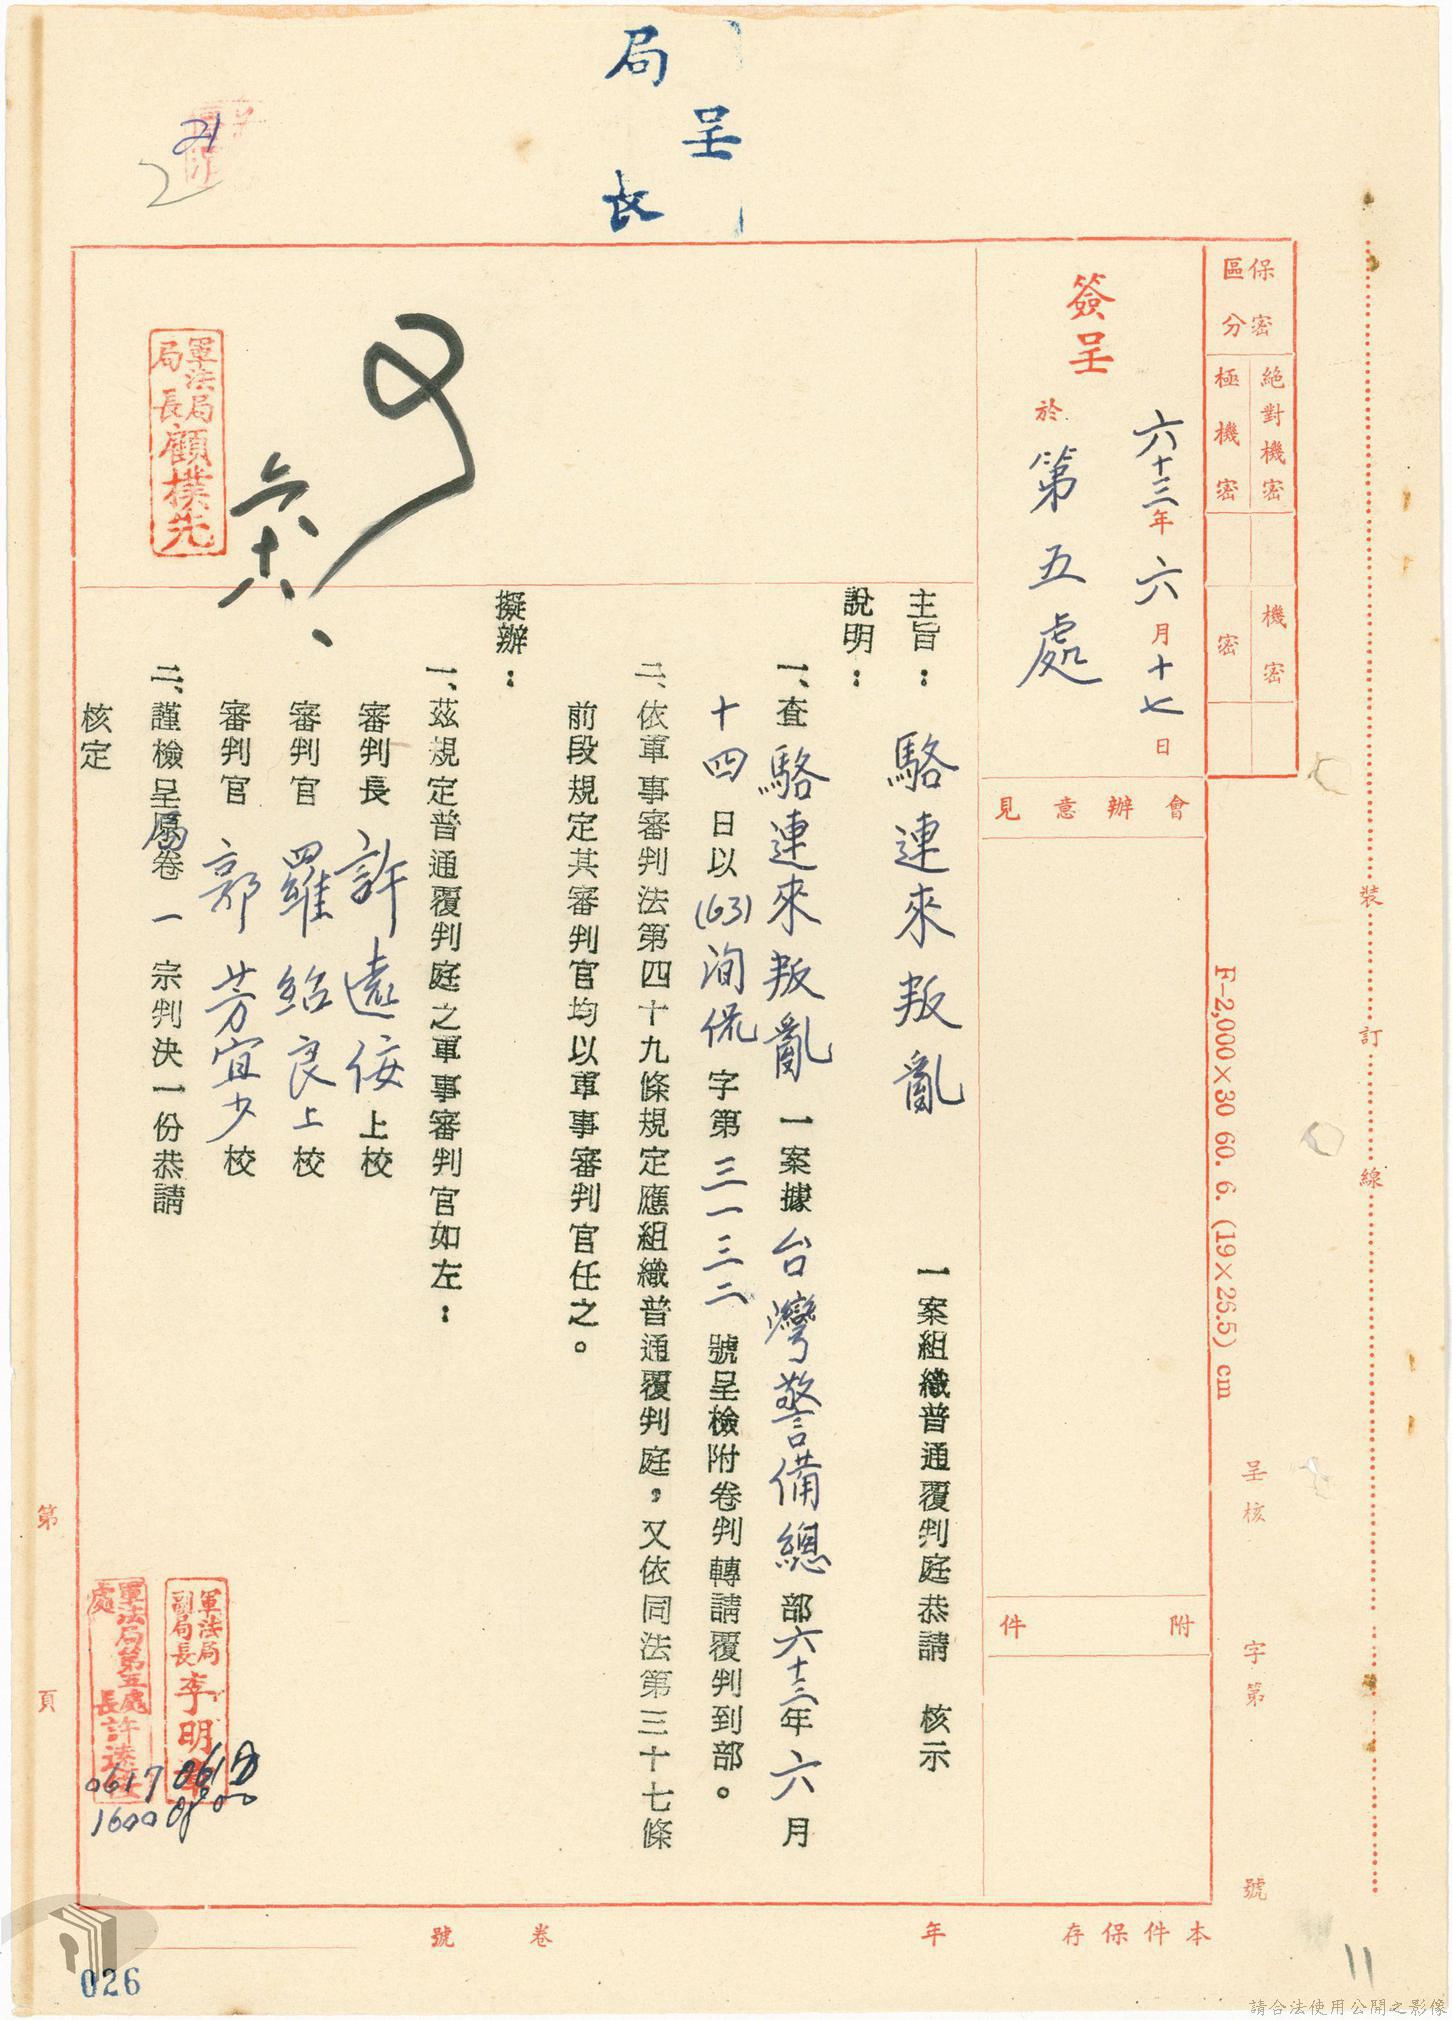 呈
局長
21
2
保密區分
絕對機密
極機密
機密
密
簽呈
六十三年六月十七日
於第五處
會辦意見
附件
主旨：駱連來叛亂一案組織普通覆判庭恭請 核示
說明：
一、查駱連來叛亂一案據台灣警備總部六十三年六月
十四日以(63)洵侃字第三一三二號呈檢附卷判轉請覆判到部。
二、依軍事審判法第四十九條規定應組織普通覆判庭，又依同法第三十七條
前段規定其審判官均以軍事審判官任之。
擬辦：
一、茲規定普通覆判庭之軍事審判官如左：
審判長 許遠佞 上校
審判官 羅紹良 上校
審判官 郭芳宜 少校
二、謹檢呈原卷一宗判決一份恭請
核定
可
六十八
軍法局局長顧樸先
軍法局副局長李明
軍法局第五處處長許遠
0617
1600
裝訂線
F—2,000×30 60. 6. (19×26.5) cm
呈核
字第
號
第
頁
本件保存
年
卷
號
026
11
請合法使用公開之影像